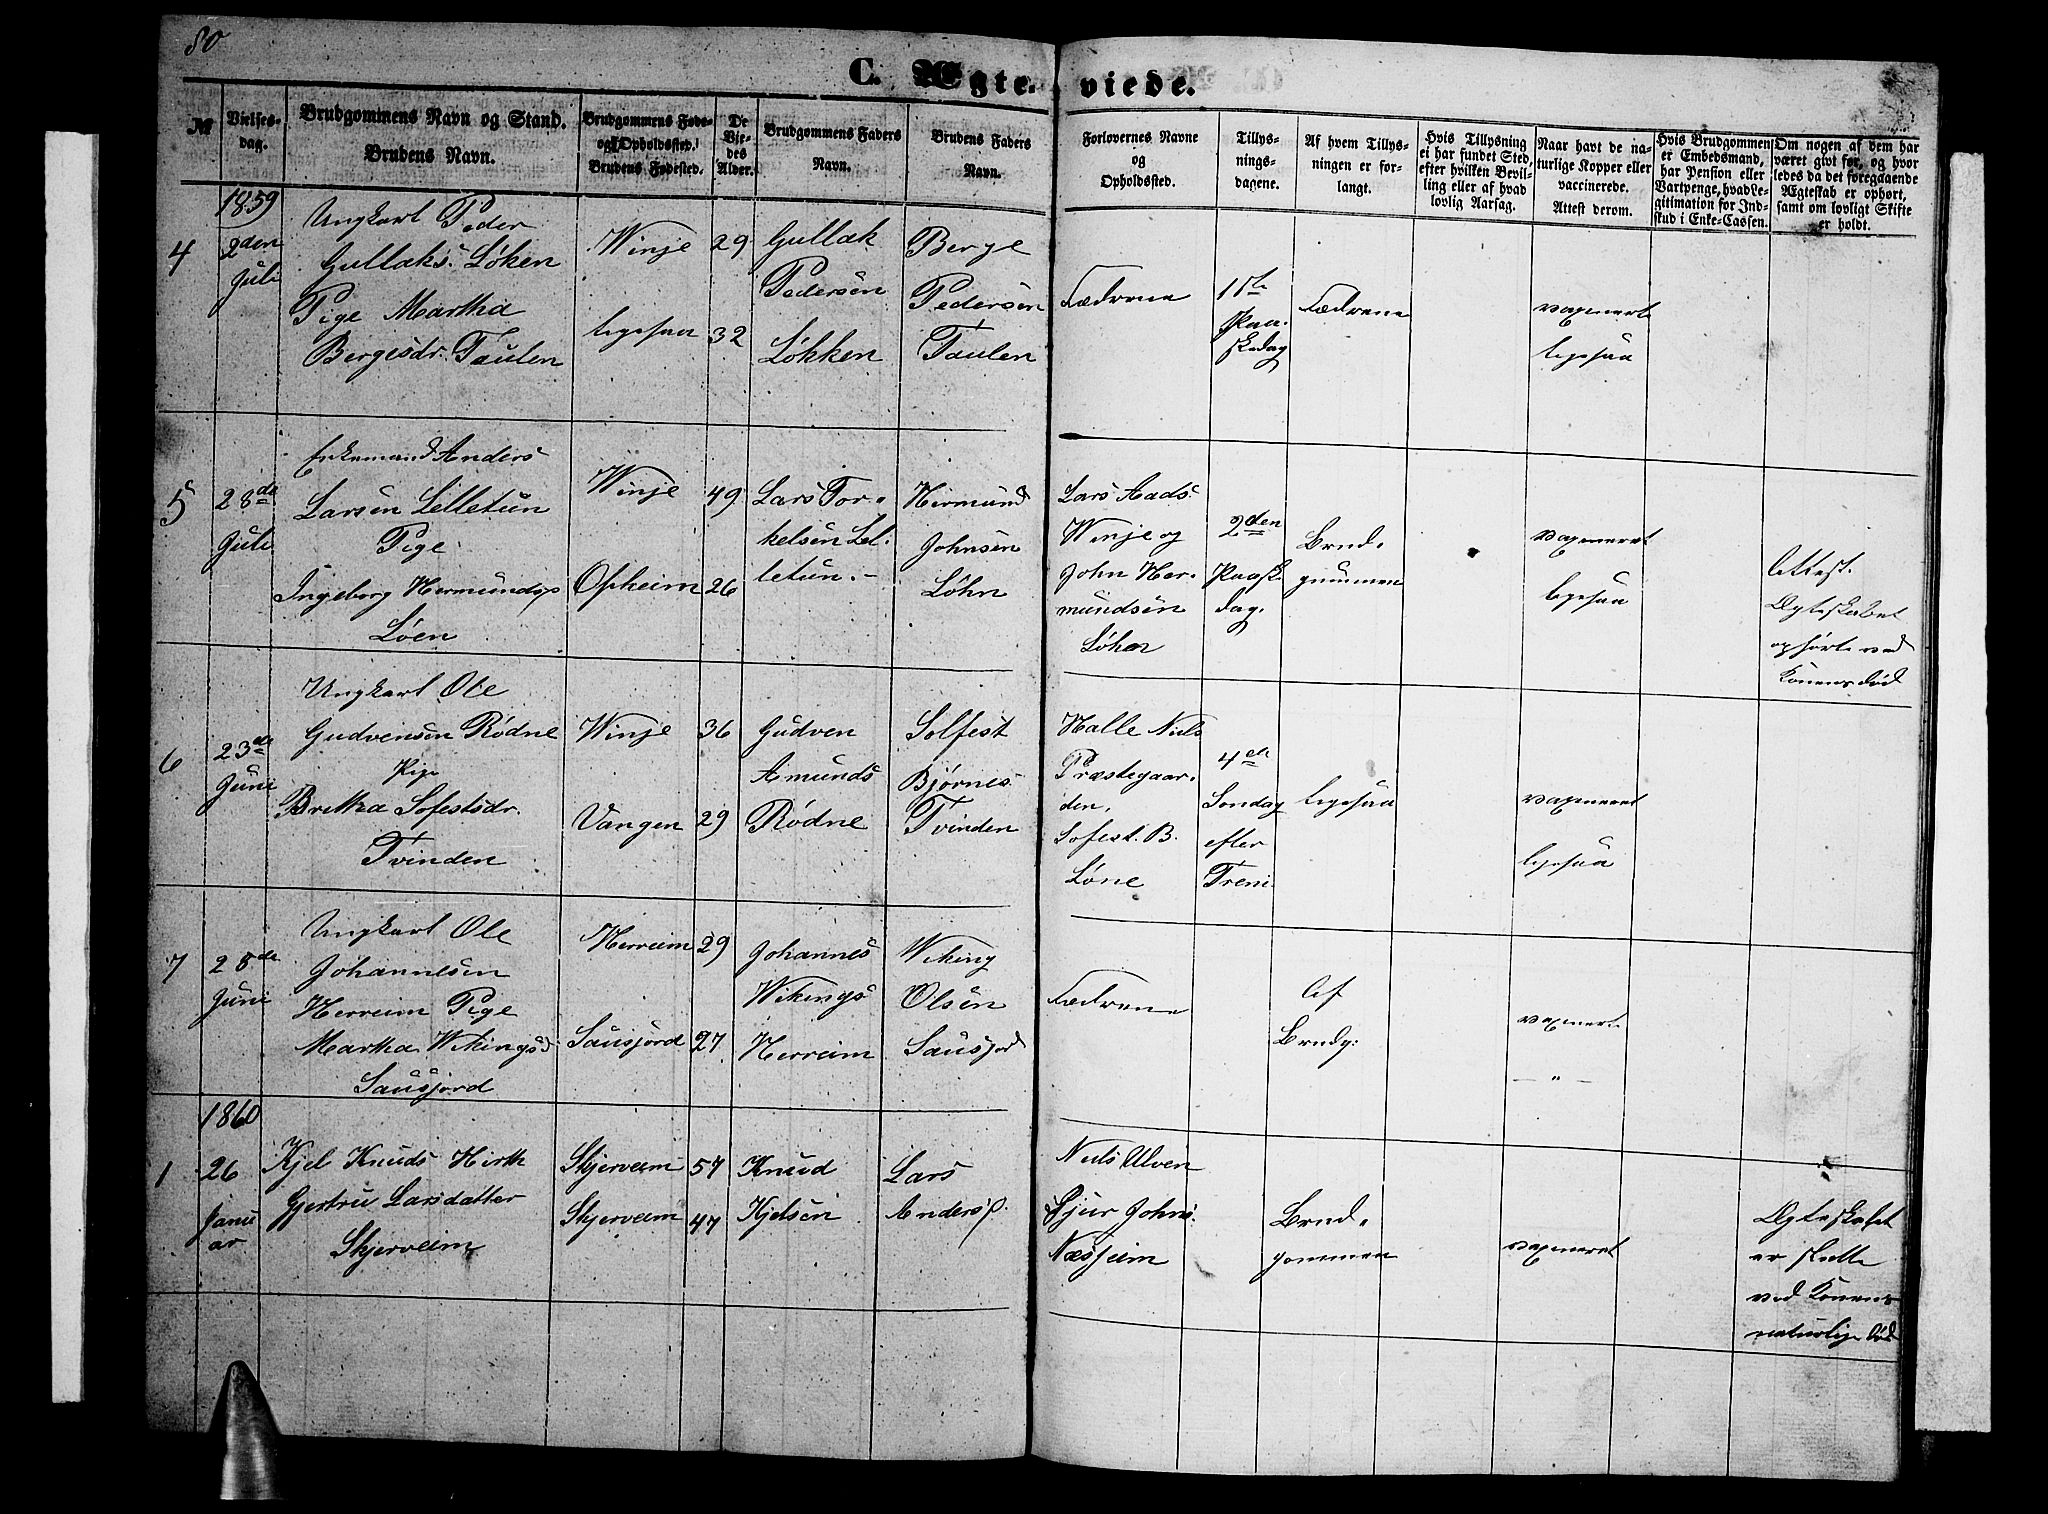 80
C. Ægteviede.
№
Vielses-
dag.
Brudgommens Navn og Stand.
Brudens Navn.
Brudgommens Føde-
og Opholdssted.
Brudens Fødested.
De
Vie-
des
Alder.
Brudgommens Faders
Navn.
Brudens Faders
Navn.
Forlovernes Navne
og
Opholdssted.
Tillys-
nings-
dagene.
Af hvem Tillys-
ningen er for-
langt.
Hvis Tillysning
ei har fundet Sted,
efter hvilken Bevil-
ling eller af hvad
lovlig Aarsag.
Naar havt de na-
turlige Kopper eller
vaccinerede.
Attest derom.
Hvis Brudgommen
er Embedsmand,
har Pension eller
Vartpenge, hvad Le-
gitimation for Ind-
skud i Enke-Cassen.
Om nogen af dem har
været givt før, og hvor
ledes da det foregaaende
Ægteskab er ophørt,
samt om lovligt Skifte
er holdt.
1859
4
2den
Juli
Ungkarl Peder
Gullaks. Løken
Pige Martha
Bergesdr. Taulen
Winje
ligesaa
29
32
Gullak
Pedersen
Løkken
Berge
Pedersen
Taulen
Fædrene
1ste
Paa-
skedag
Fædrene
vaxineret
ligesaa
5
28de
Juli
Enkemand Anders
Larsen Lilletun
Pige
Ingeborg Hermundsd.
Løen
Winje
Opheim
49
26
Lars Tor-
kelsen Lil-
letun.
Hermund
Johnsen
Løhn
Lars Aads.
Winje og
John Her-
mundsen
Løhen
2den
Paask
dag.
Brud-
gummen
vaxineret
ligesaa
Attest.
Ægteskabet
ophørte ved
Konens død
6
23de
Juni
Ungkarl Ole
Gudvensen Rødne
Pige
Britha Sofestsdr.
Tvinden
Winje
Vangen
36
29
Gudven
Amunds
Rødne
Solfest
Bjørnes.
Tvinden
Halle Niels
Præstegaar-
den,
Sofest. B.
Løne
4de
Søndag
efter
Treni
ligesaa
vaxineret
ligesaa
7
28de
Juni
Ungkarl Ole
Johannesen
Herreim Pige
Martha Wikingsd
Sausjord
Herreim
Sausjord
29
27
Johannes
Wikings
Herreim
Wiking
Olsen
Sausjord
Fædrene
Af
Brudg:
vaxineret
— " —
1860
1
26
Janu
ar
Kjel Knuds Hirth
Gjertru Larsdatter
Skjerveim
Skjerveim
Skjerveim
57
47
Knud
Kjelsen
Lars
Anders.
Niels Ulven
Sjur Johns.
Næsheim
Brud-
gommen
vaxineret
Ægteskabet
er skilte
ved Konens
naturlige død